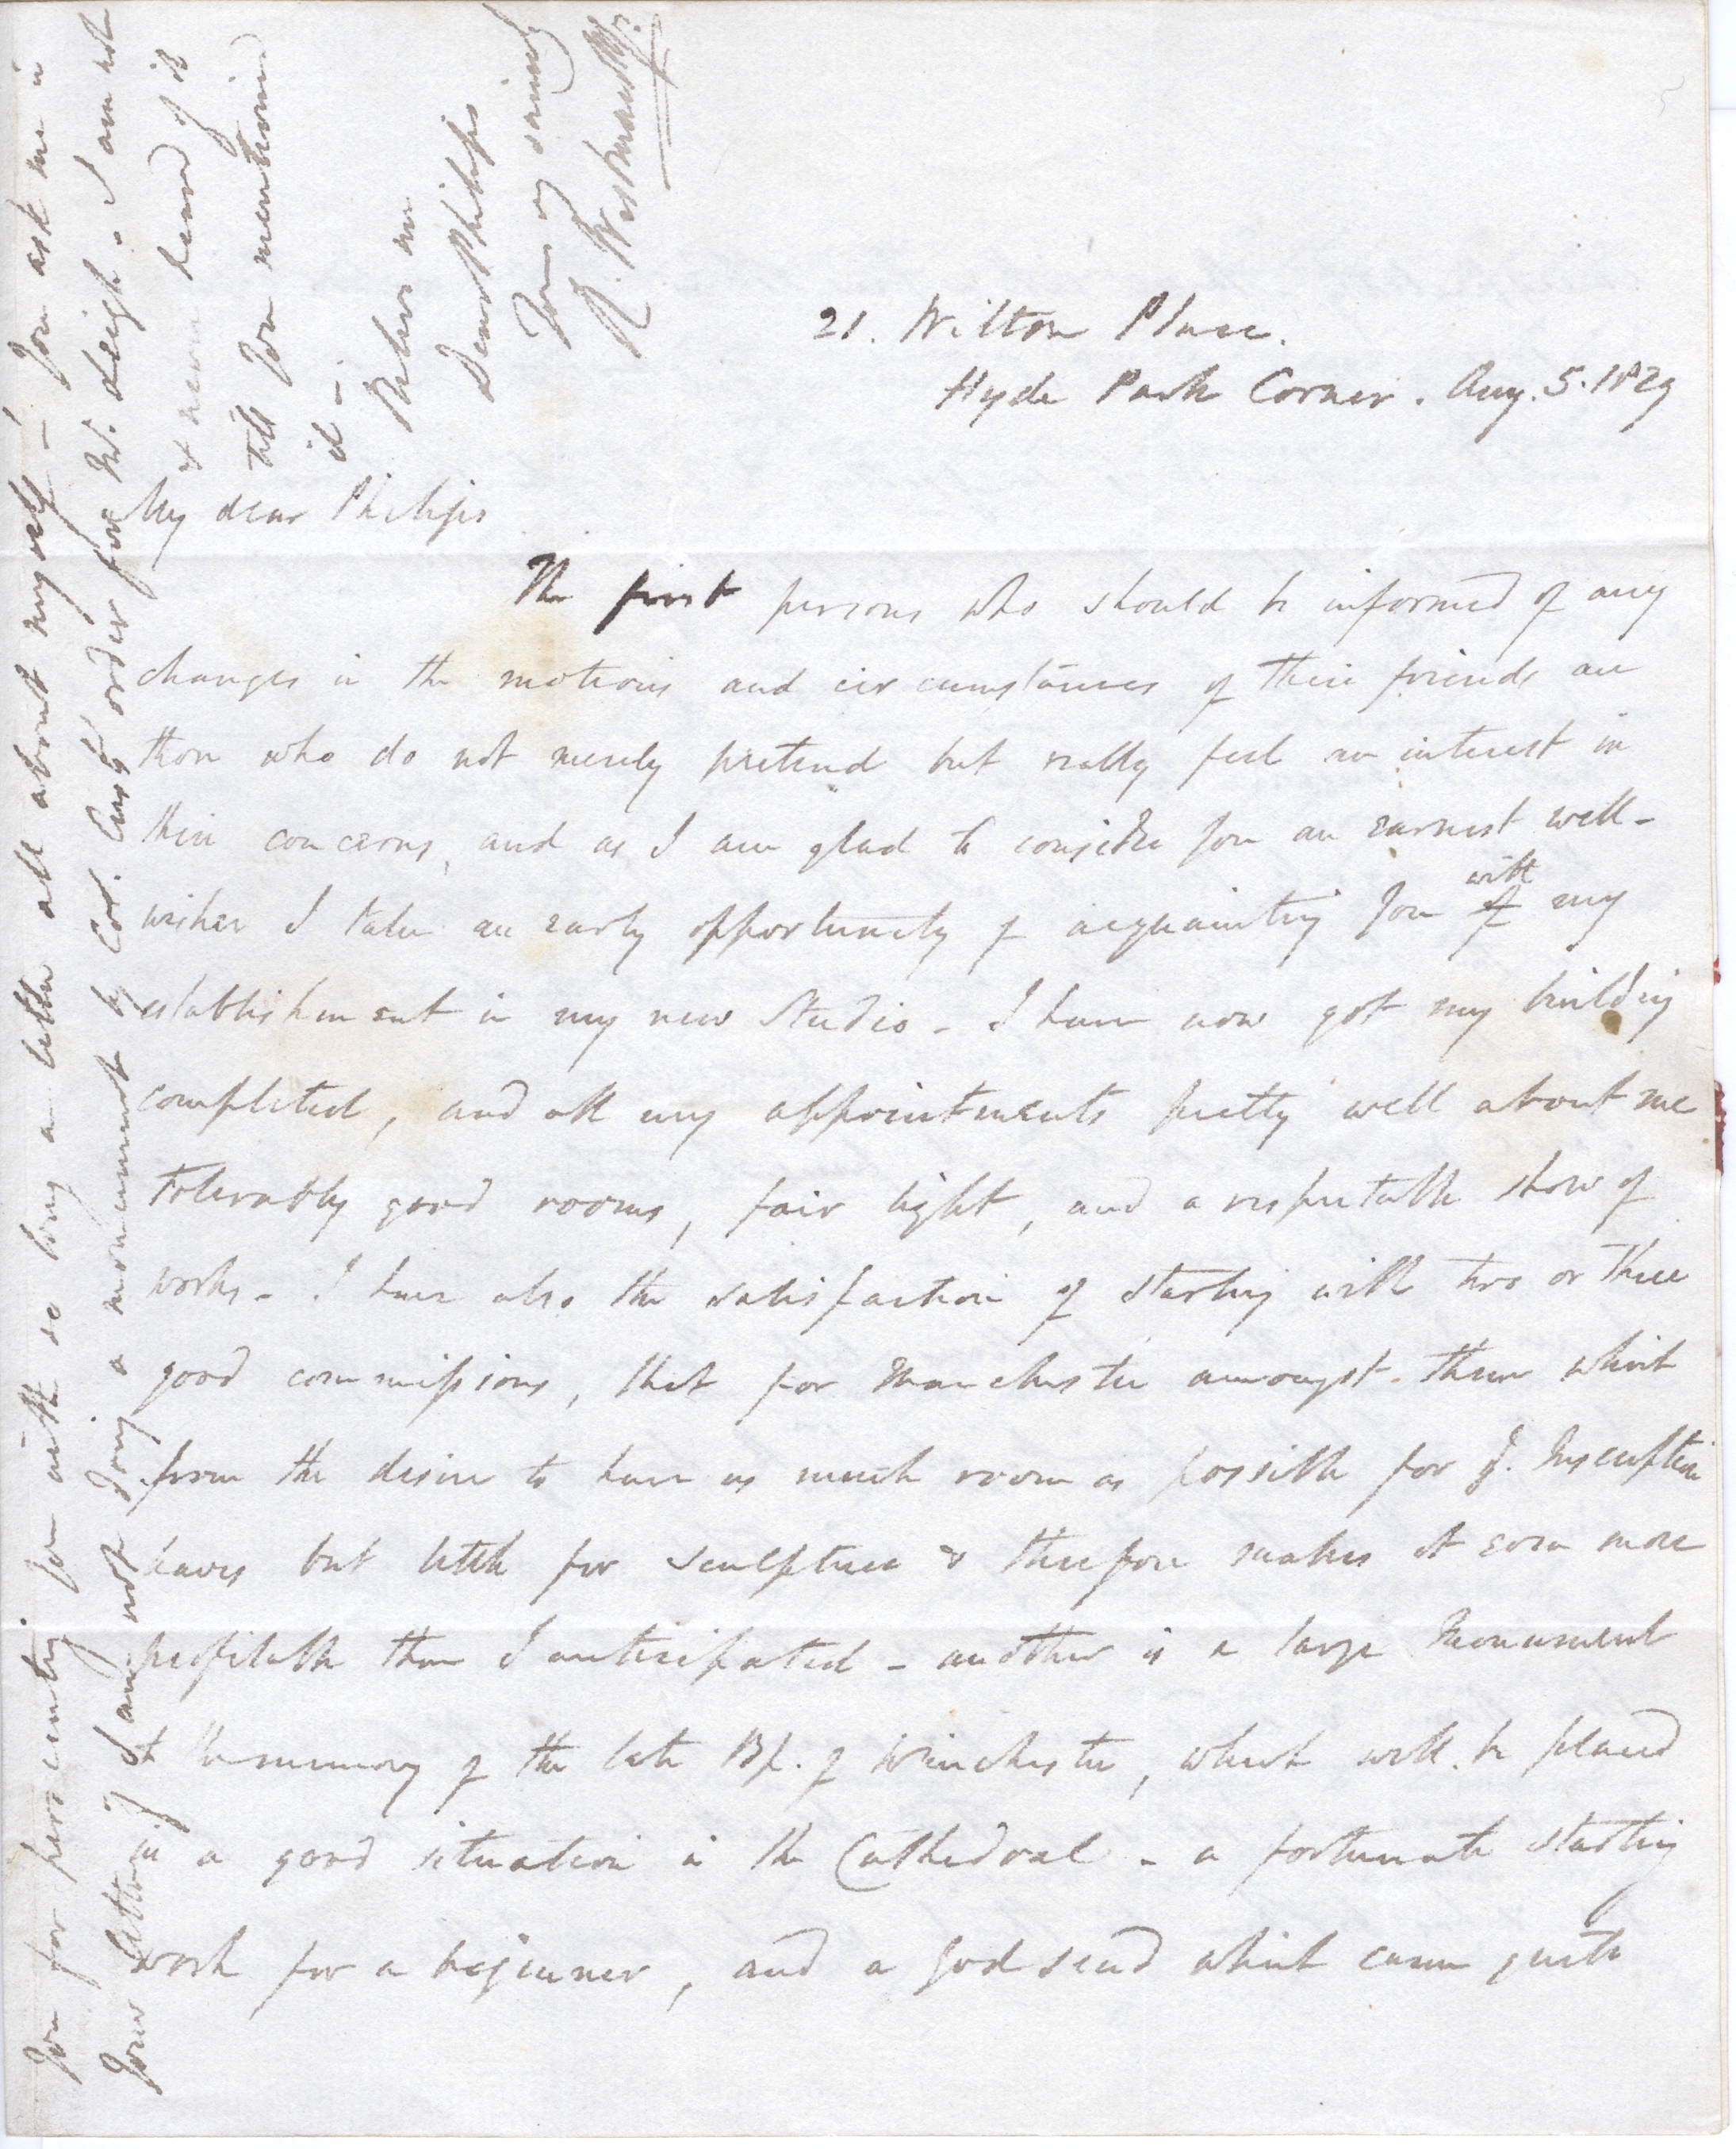 21. Wilton Place.
Hyde Park Corner. Aug. 5. 1829
My dear Philips
The first persons who should be informed of any
changes in the motions and circumstances of their friends are
those who do not merely pretend but really feel an interest in
their concerns, and as I am glad to consider you an earnest well-
wisher I take an early opportunity of acquainting you of with my
establishment in my new Studio - I have now got my building
completed, and all my appointments pretty well about me
tolerably good rooms, fair light, and a respectable show of
works - I have also the satisfaction of starting with two or three
good commissions, that for Manchester amongst them which
from the desire to have as much room as possible for Inscription
leaves but little for sculpture & therefore makes it even more
profitable than I anticipated - another is a large Monument
to the memory of the late Bp. of Winchester, which will be placed
in a good situation in the Cathedral - a fortunate starting
work for a beginner, and a god send which came quite
you for persecuting you with so long a letter all about myself - You ask me in
your letter if I am not doing a monument by Col. order for Mr. Leigh - I am not
& never heard of it
till you mentioned
it -
Believe me
Dear Philips
Yours very sincerely
R. Westmacott Jr.